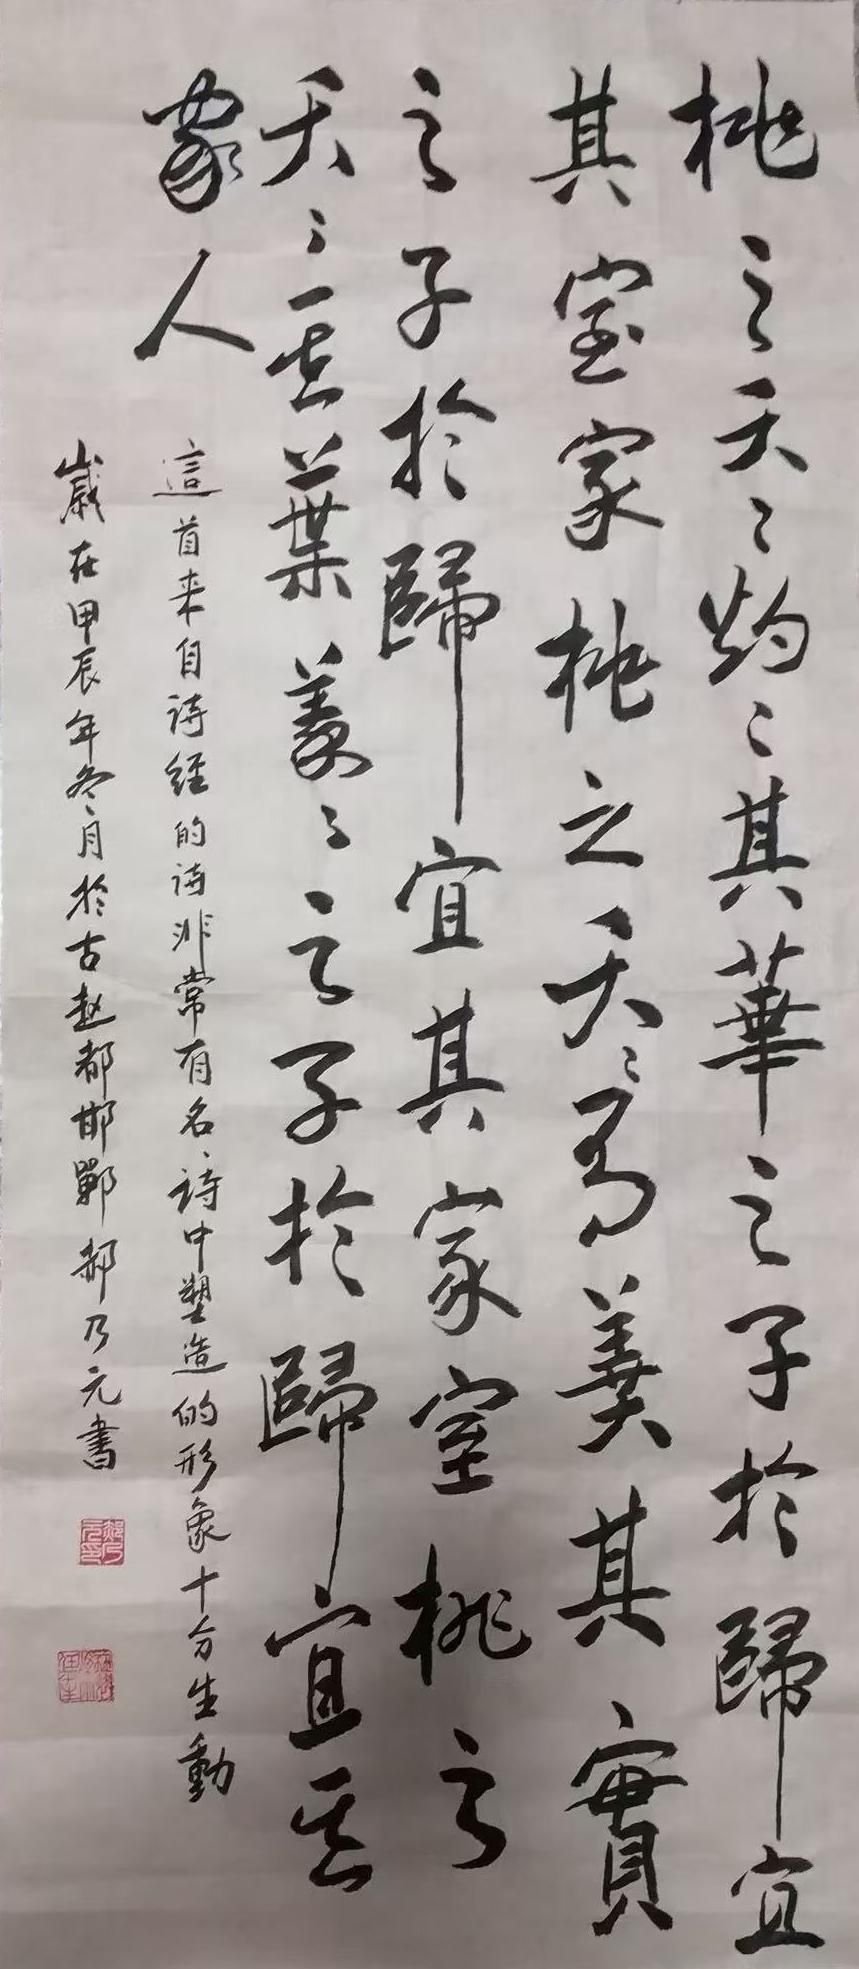 桃之夭〻灼〻其華之子於歸宜
其室家桃之夭〻有蕡其實
之子於歸宜其家室桃之
夭〻其葉蓁〻之子於歸宜其
家人
這首来自詩經的詩非常有名詩中塑造的形象十分生動
歲在甲辰年冬月於古赵都邯鄲郝乃元書